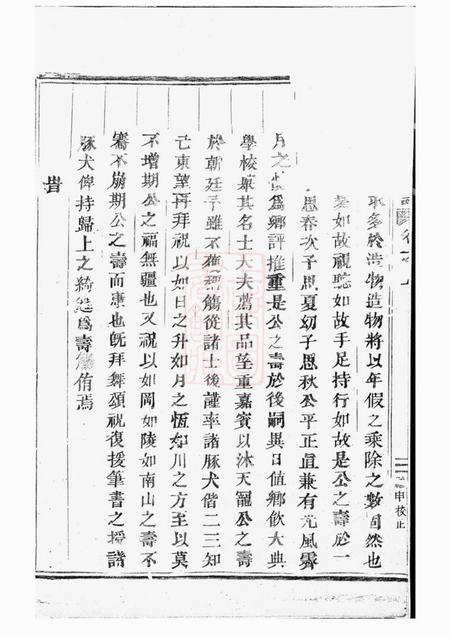 取多於造物造物將以年假之乘除之數固然也
如故視聽如故手足持行如故是公之壽於一
思春次子思夏幼子思秋公平正直兼有光風霽
月之 爲鄉評推重是公之壽於後嗣異日值鄉飲大典
學校舉其名士大夫薦其品望重嘉賓以沐天寵公之壽
於朝廷予雖不 觴從諸士後謹率諸豚犬偕二三知
己東望再拜祝以如日之升如月之恆如川之方至以莫
不增期公之福無疆也又祝以如岡如陵如南山之壽不
騫不崩期公之壽而康也旣拜舞頌祝復援筆書之授諸
豚犬俾持歸上之綺筵爲壽觴侑焉
申校止